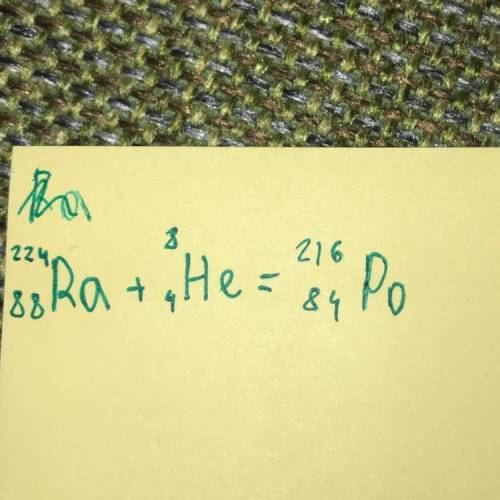 Ra
²²⁴₈₈Ra + ⁸₄He = ²¹⁶₈₄Po